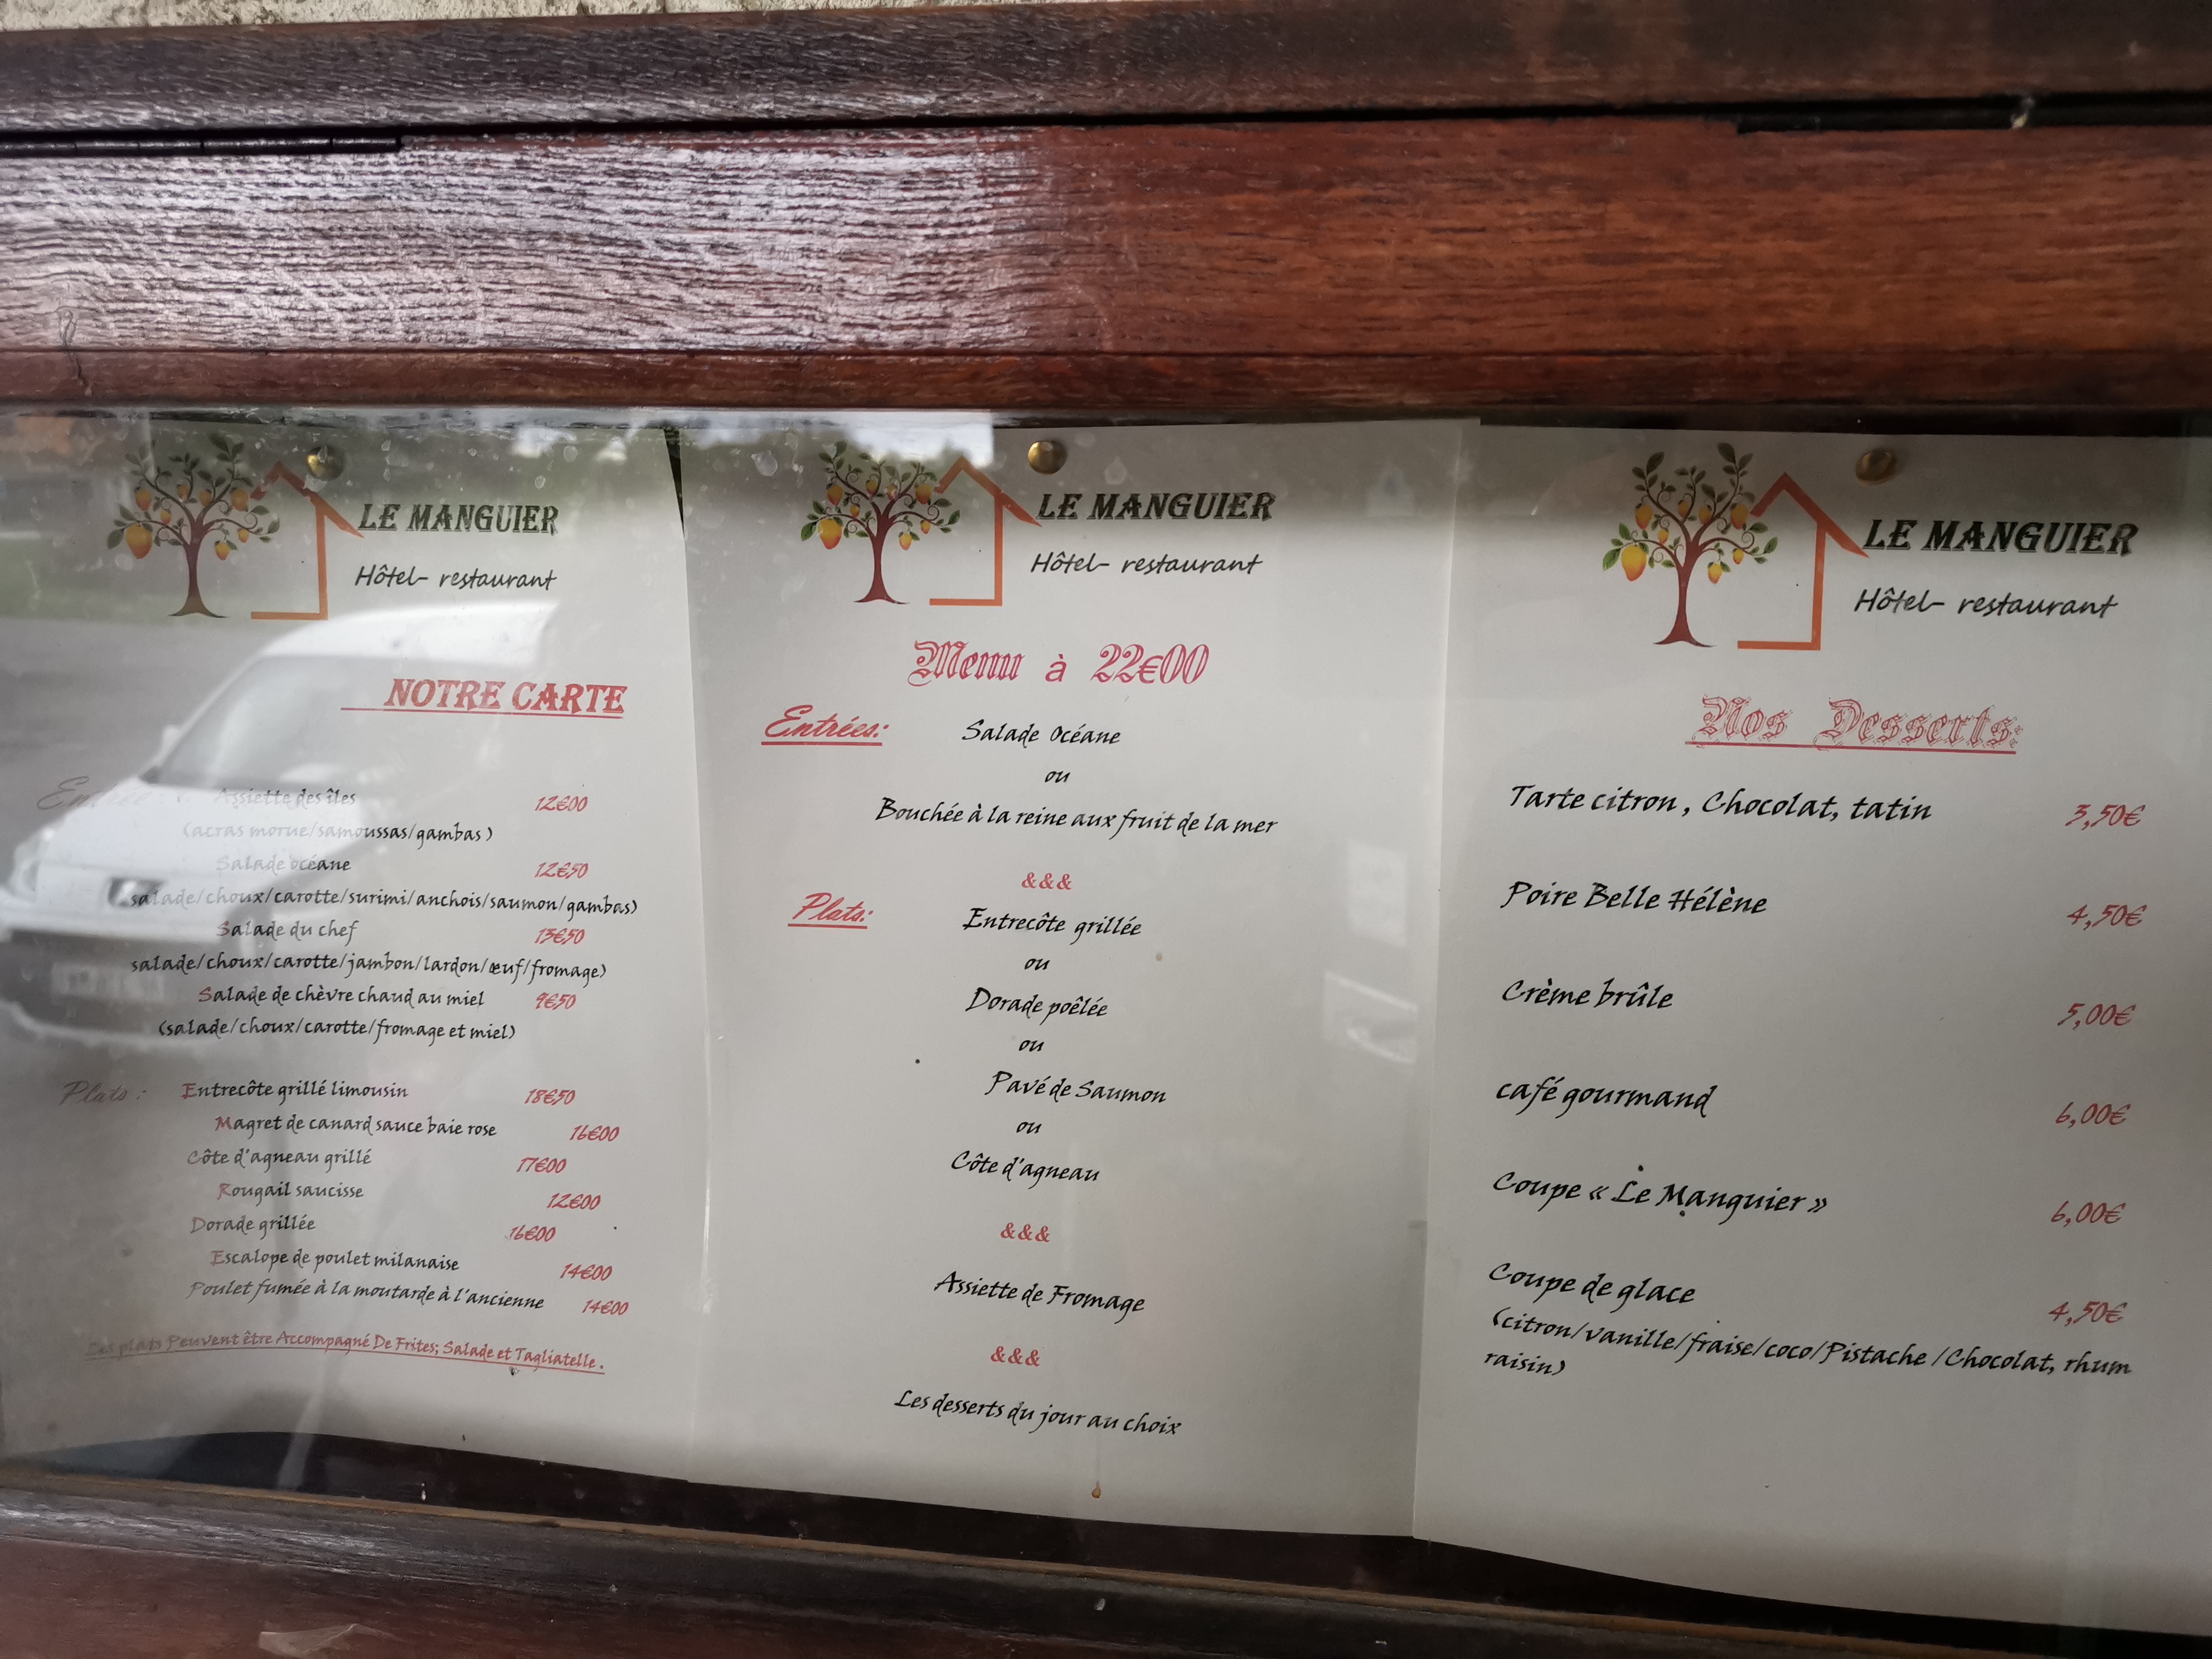 LE MANGUIER
Hôtel- restaurant
NOTRE CARTE
Entrée : Assiette des îles 12€00
(acras morue/samoussas/gambas )
Salade océane 12€50
salade/choux/carotte/surimi/anchois/saumon/gambas)
Salade du chef 13€50
salade/choux/carotte/jambon/lardon/œuf/fromage)
Salade de chèvre chaud au miel 9€50
(salade/choux/carotte/fromage et miel)
Plats : Entrecôte grillé limousin 18€50
Magret de canard sauce baie rose 16€00
Côte d'agneau grillé 17€00
Rougail saucisse 12€00
Dorade grillée 16€00
Escalope de poulet milanaise 14€00
Poulet fumée à la moutarde à l'ancienne 14€00
Les plats Peuvent être Accompagné De Frites; Salade et Tagliatelle .
LE MANGUIER
Hôtel- restaurant
Menu à 22€00
Entrées: Salade Océane
ou
Bouchée à la reine aux fruit de la mer
&&&
Plats: Entrecôte grillée
ou
Dorade poêlée
ou
Pavé de Saumon
ou
Côte d'agneau
&&&
Assiette de Fromage
&&&
Les desserts du jour au choix
LE MANGUIER
Hôtel- restaurant
Nos Desserts:
Tarte citron , Chocolat, tatin 3,50€
Poire Belle Hélène 4,50€
Crème brûle 5,00€
café gourmand 6,00€
Coupe « Le Manguier » 6,00€
Coupe de glace 4,50€
(citron/vanille/fraise/coco/Pistache /Chocolat, rhum
raisin)